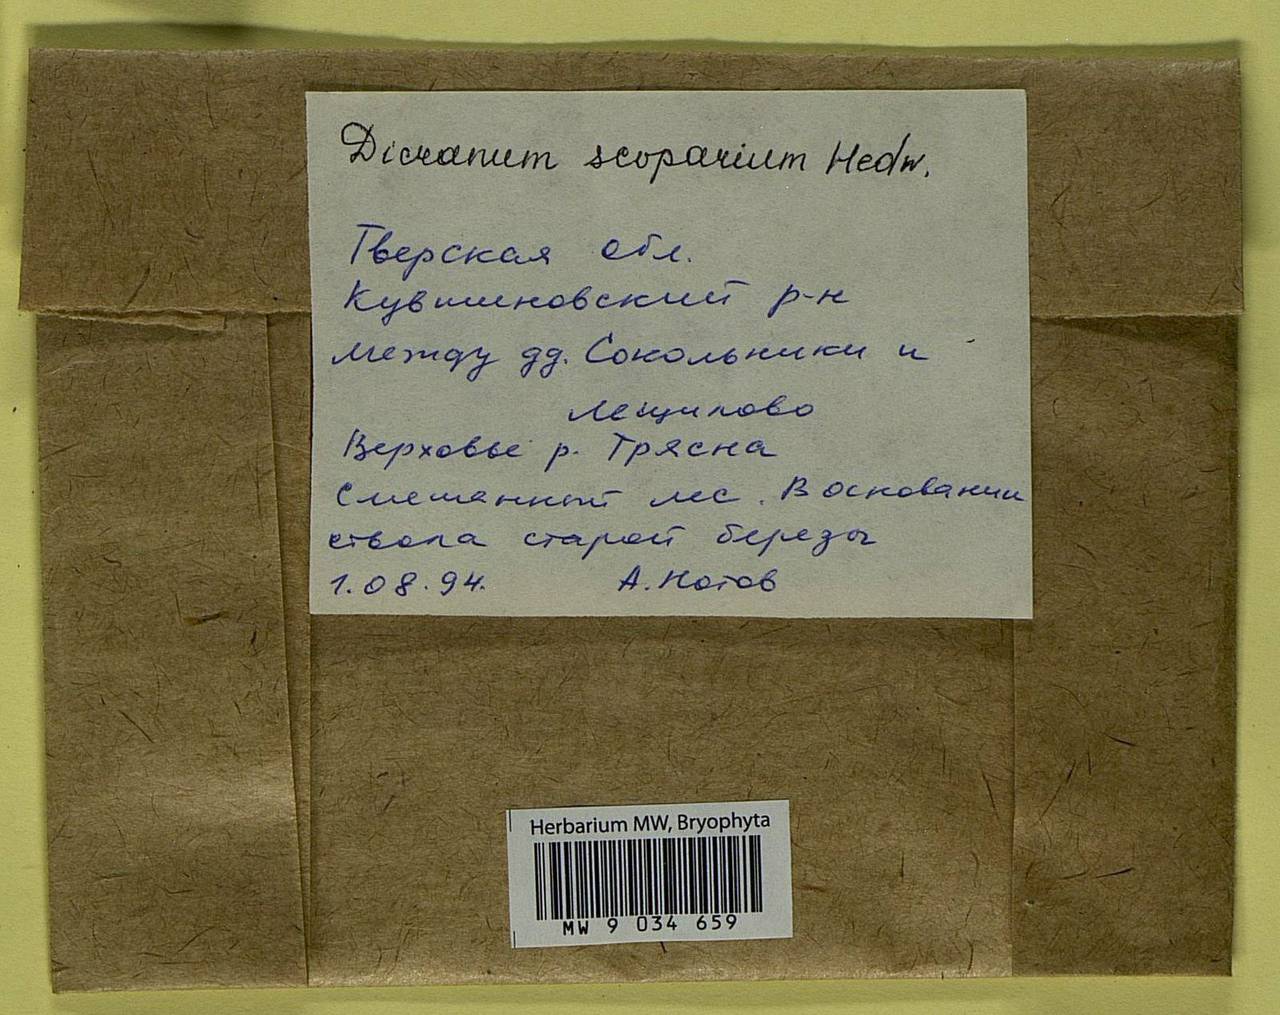 Dicranum scoparium Hedw.
Тверская обл.
Кувшиновский р-н
между дд. Сокольники и
Лещилово
Верховье р. Трясна
Смешанный лес. В основании
ствола старой березы
1.08.94. А. Нотов
Herbarium MW, Bryophyta
MW 9 034 659